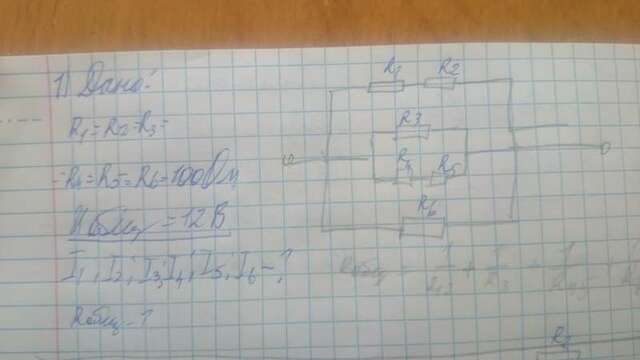 1) Дано:
R1 = R2 = R3 =
= R4 = R5 = R6 = 100 Ом
U общ = 12 В
I1, I2, I3, I4, I5, I6 - ?
R общ - ?
R1 R2
R3
R4 R5
R6
R общ = 1 + 1/R3
R2